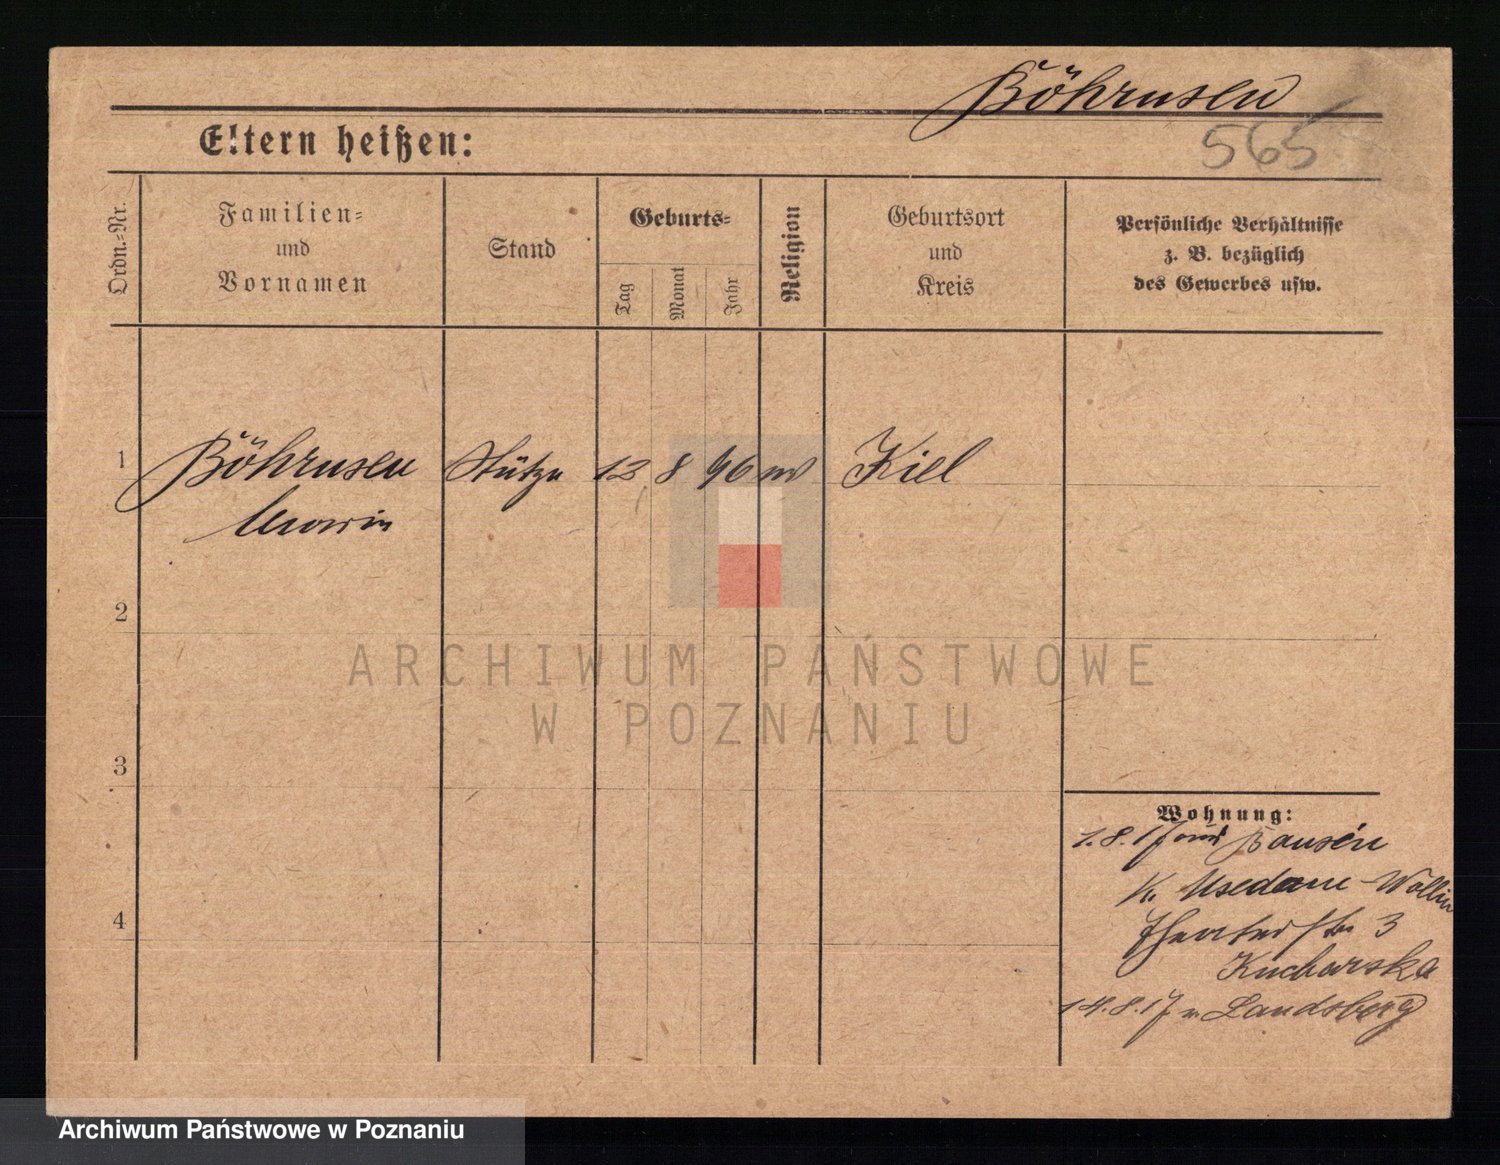 Böhrnsen
565
Eltern heißen:
Ordn.-Nr.
Familien-
und
Vornamen
Stand
Geburts-
Tag
Monat
Jahr
Religion
Geburtsort
und
Kreis
Persönliche Verhältnisse
z. B. bezüglich
des Gewerbes usw.
1
Böhrnsen
Stütze
12
8
96
Kiel
2
ARCHIWUM PAŃSTWOWE
W POZNANIU
3
Wohnung:
1.8.17 Bansin
K. Usedom-Wollin
Theaterstr 3
4
Kucharska
14.8.17 n. Landsberg
Archiwum Państwowe w Poznaniu